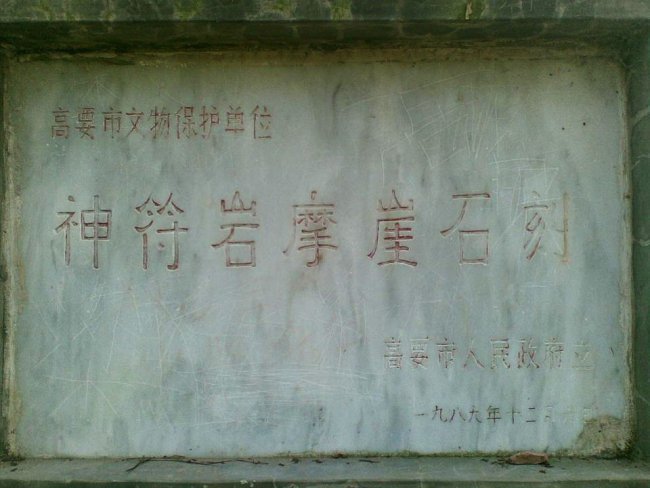 高要市文物保护单位
神符岩摩崖石刻
高要市人民政府立
一九八九年十二月